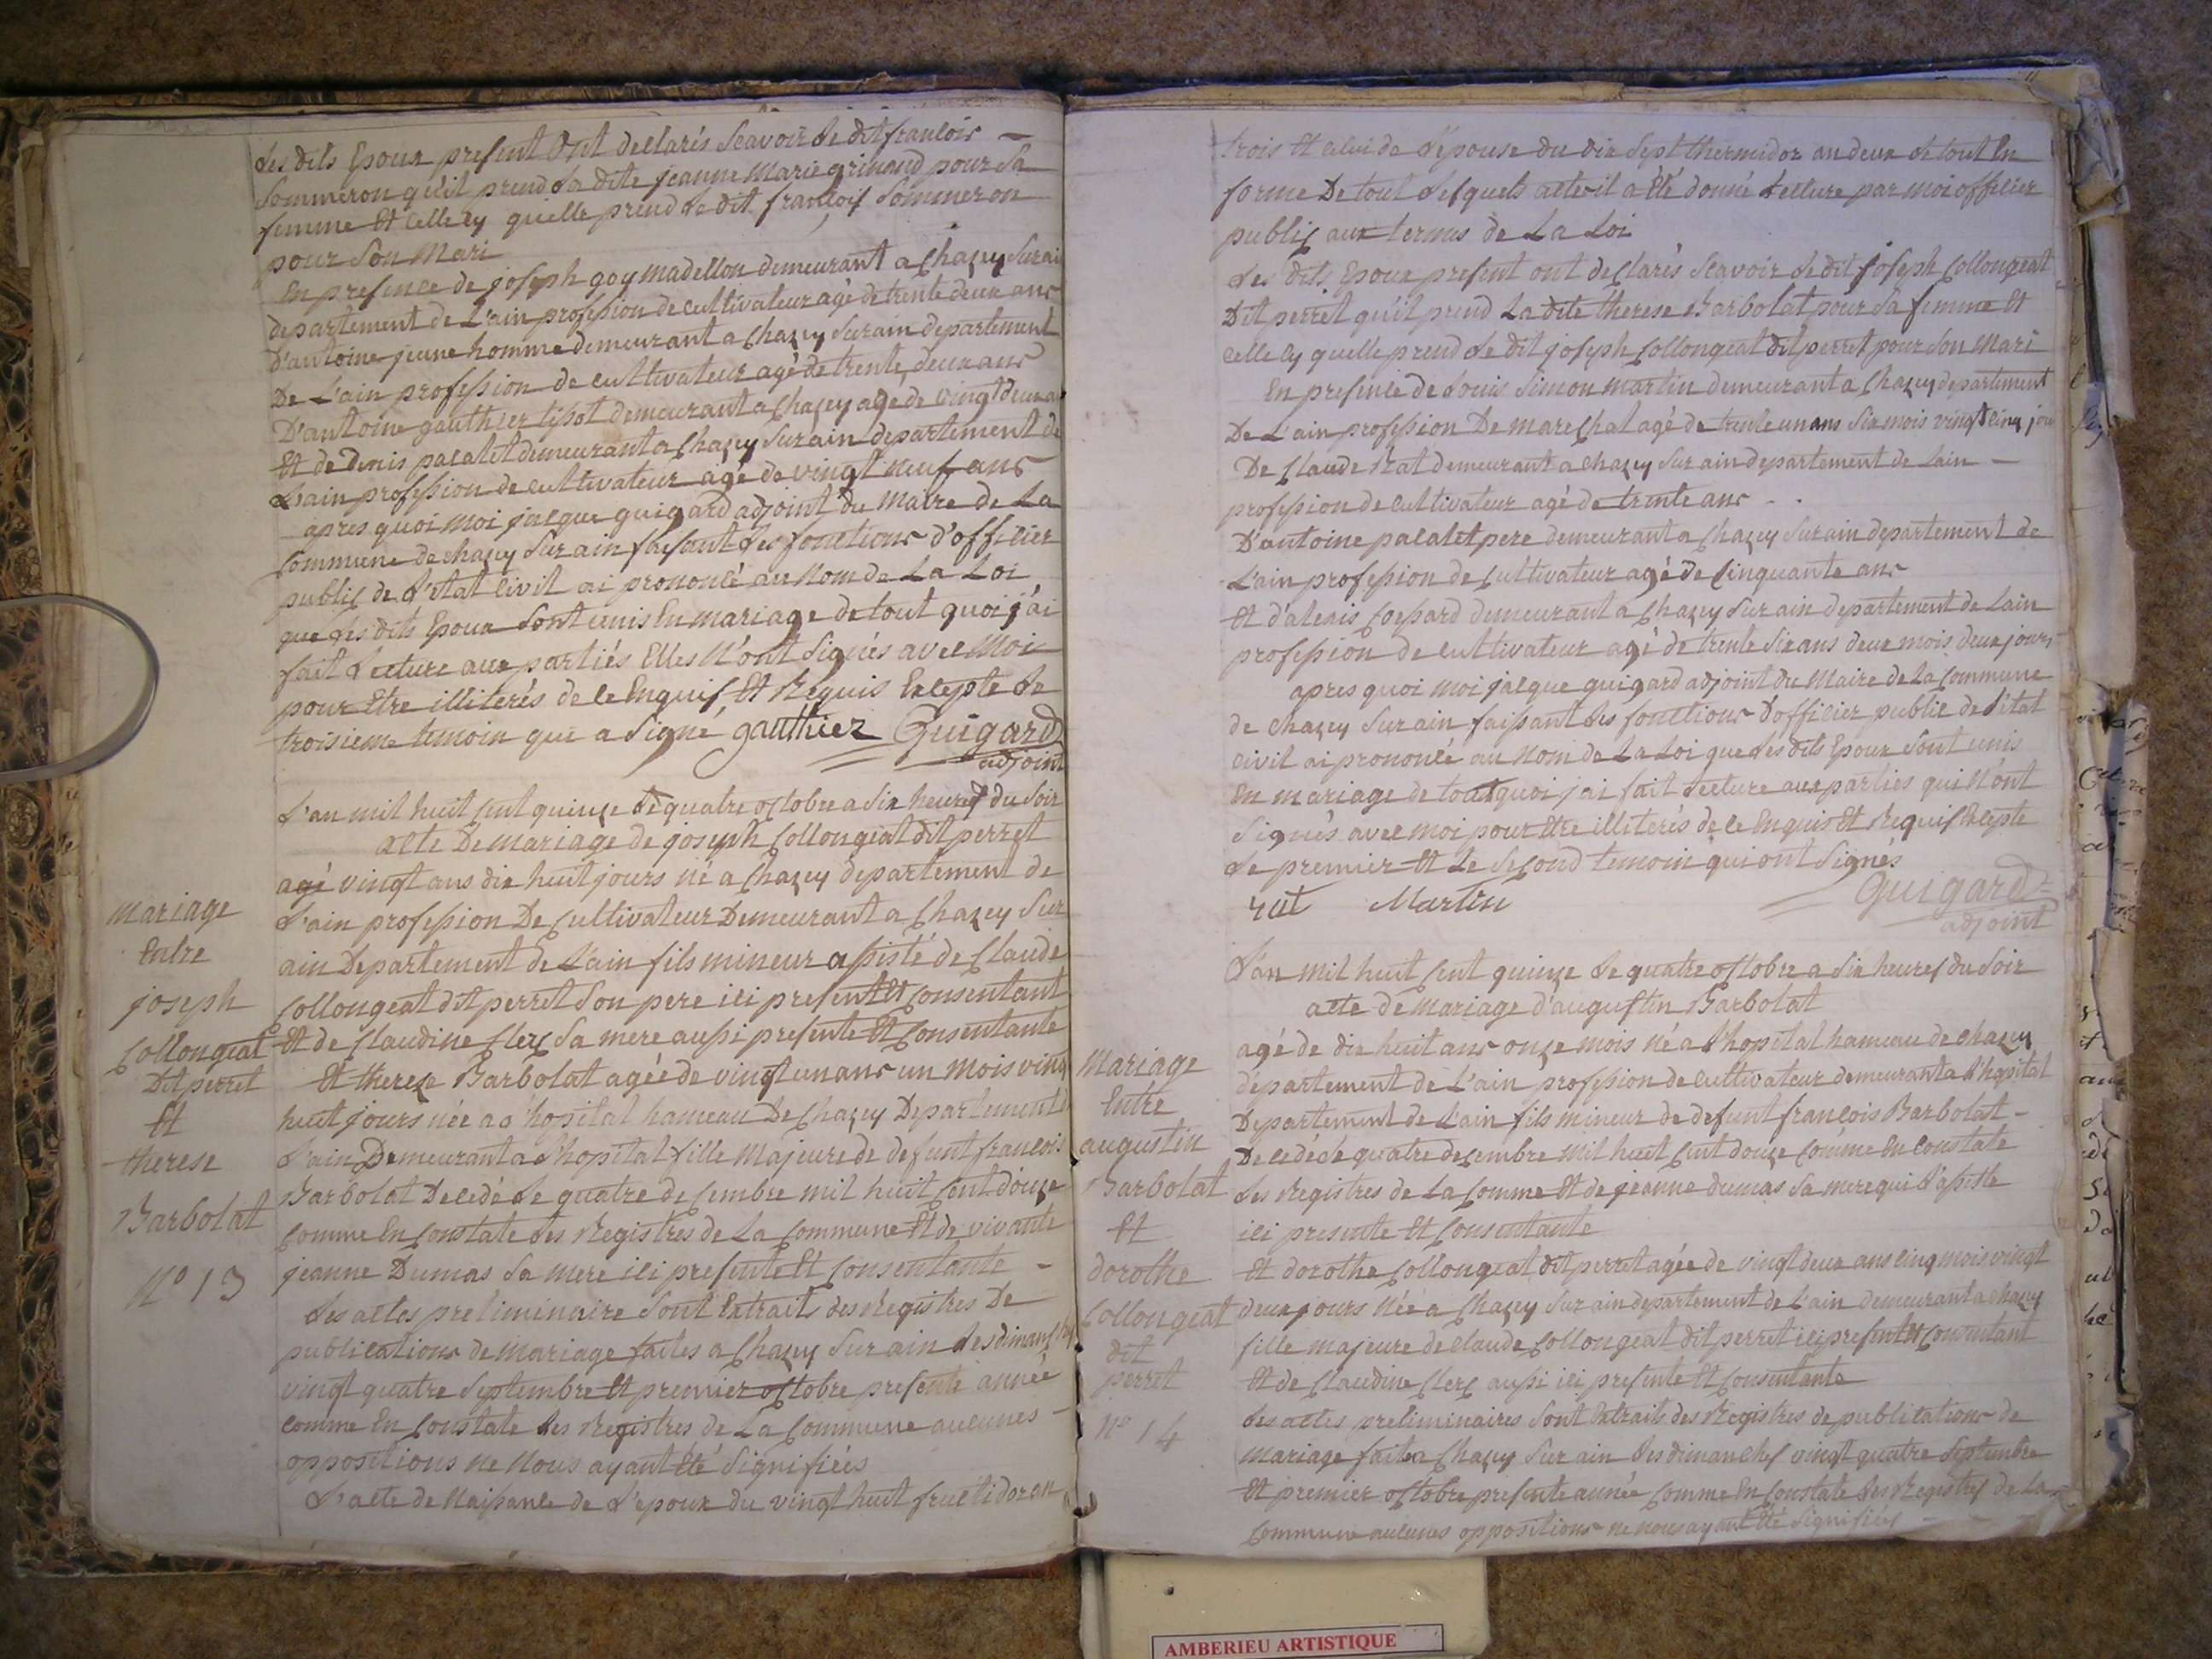 Les dits Epoux present ont declarés Scavoir Le dit francois –
Sommeron qu'il prend La dite jeanne Marie grinand pour Sa
femme Et Celle cy qu'elle prend Le dit francois Sommeron
pour Son Mari
En presence de joseph goy madellon demeurant a Chazey Sur ain
departement de L'ain profession de cultivateur agé de trente deux ans
D'antoine jeune homme demeurant a Chazey Sur ain departement
De L'ain profession de cultivateur agé de trente deux ans
D'antoine gauthier tissot demeurant a Chazey agé de vingt deux a
Et de Denis palatet demeurant a Chazey Sur ain departement de
L'ain profession de cultivateur agé de vingt neuf ans
apres quoi Moi jacque guigard adjoint du Maire de La
Commune de chazey Sur ain faisant Les fonctions d'officier
public de L'etat civil ai prononcé au Nom de La Loi
que Les dits Epoux Sont unis En mariage de tout quoi j'ai
fait Lecture aux partiés Elles N'ont Signés avec Moi
pour Etre illiterés de ce Enquis Et Requis Excepte Le
troisieme temoin qui a Signé gauthier Guigard
adjoint
L'an mil huit Cent quinze Le quatre octobre a Six heures du Soir
acte De mariage de joseph Collongeat dit perret
agé vingt ans dix huit jours né a Chazey departement de
L'ain profession De Cultivateur Demeurant a Chazey Sur
ain Departement de L'ain fils mineur assisté de Claude
Collongeat dit perret Son pere ici present Et Consentant
Et de Claudine Clerc Sa mere aussi presente Et Consentante
Et thereze Barbolat agée de vingt un ans un Mois vingt
huit jours née a L'hopital hameau De Chazey Departement
L'ain Demeurant a L'hopital fille Majeure de defunt francois
Barbolat Decedé Le quatre decembre mil huit Cent douze
Comme En Constate Les Registres de La Commune Et de vivante
jeanne Dumas Sa mere ici presente Et Consentante –
Les actes preliminaire Sont Extraits des Registres De
publications de Mariage faites a Chazey Sur ain Les dimanches
vingt quatre Septembre Et premier octobre presente année
Comme En Constate Les Registres de La Commune aucunes –
oppositions ne Nous ayant Eté Signifiées
L'acte de Naissance de L'epoux du vingt huit fructidor an
Mariage
Entre
joseph
Collongeat
Dit perret
Et
therese
Barbolat
N° 13
trois Et Celui de L'épouse du dix Sept thermidor an deux Le tout En
forme De tout Lesquels actes il a Eté donné Lecture par moi officier
public aux termes de La Loi
Les dits Epoux present ont declarés Scavoir Le dit joseph Collongeat
Dit perret qu'il prend La dite therese Barbolat pour Sa femme Et
Celle Cy quelle prend Le dit joseph Collongeat dit perret pour Son Mari
En presence de Louis Simon Martin demeurant a Chazey departement
De L'ain profession De mareChal agé de trente un ans Six mois vingt Cinq jou
De Claude Rat demeurant a chazey Sur ain departement de Lain –
profession de cultivateur agé de trente ans - .
D'antoine palatet pere demeurant a Chazey Sur ain departement de
L'ain profession de Cultivateur agé de Cinquante ans
Et d'alexis Cossard demeurant a Chazey Sur ain departement de Lain
profession de cultivateur agé de trente Six ans deux mois deux jours
apres quoi Moi jacque guigard adjoint du Maire de La Commune
de Chazey Sur ain faissant Les fonctions D'officier public de L'etat
civil ai prononcé au Nom de La Loi que Les dits Epoux Sont unis
En mariage de tout quoi j'ai fait Lecture aux parties qui N'ont
Signés avec Moi pour Etre illiterés de ce Enquis Et Requis Excepte
Le premier Et Le Second temoin qui ont Signés
rat Martin Guigard
adjoint
L'an mil huit Cent quinze Le quatre octobre a Six heures du Soir
acte de Mariage d'augustin Barbolat
agé de dix huit ans onze mois né a L'hopital hameau de chazey
département de L'ain profession de cultivateur demeurant a L'hopital
Departement de L'ain fils mineur de defunt francois Barbolat –
Decedé Le quatre decembre mil huit Cent douze Comme En Constate
Les Registres de La Comme Et de jeanne dumas Sa mere qui L'assiste
ici presente Et Consentante
Et dorothe Collongeat dit perret agée de vingt deux ans Cinq mois vingt
deux jours Née a Chazey Sur ain departement de L'ain demeurant a Chazey
fille majeure de Claude Collongeat dit perret ici present Et Consentant
Et de Claudine Clerc aussi ici presente Et Consentante
Les actes preliminaires Sont Extraits des Registres de publications de
Mariage fait a Chazey Sur ain Les dimanches vingt quatre Septembre
Et premier octobre presente année Comme En Constate Les Registres de La
Commune aucunes oppositions ne nous ayant Eté Signifiées
Mariage
Entre
augustin
Barbolat
Et
dorothe
Collongeat
dit
perret
N° 14
AMBERIEU ARTISTIQUE